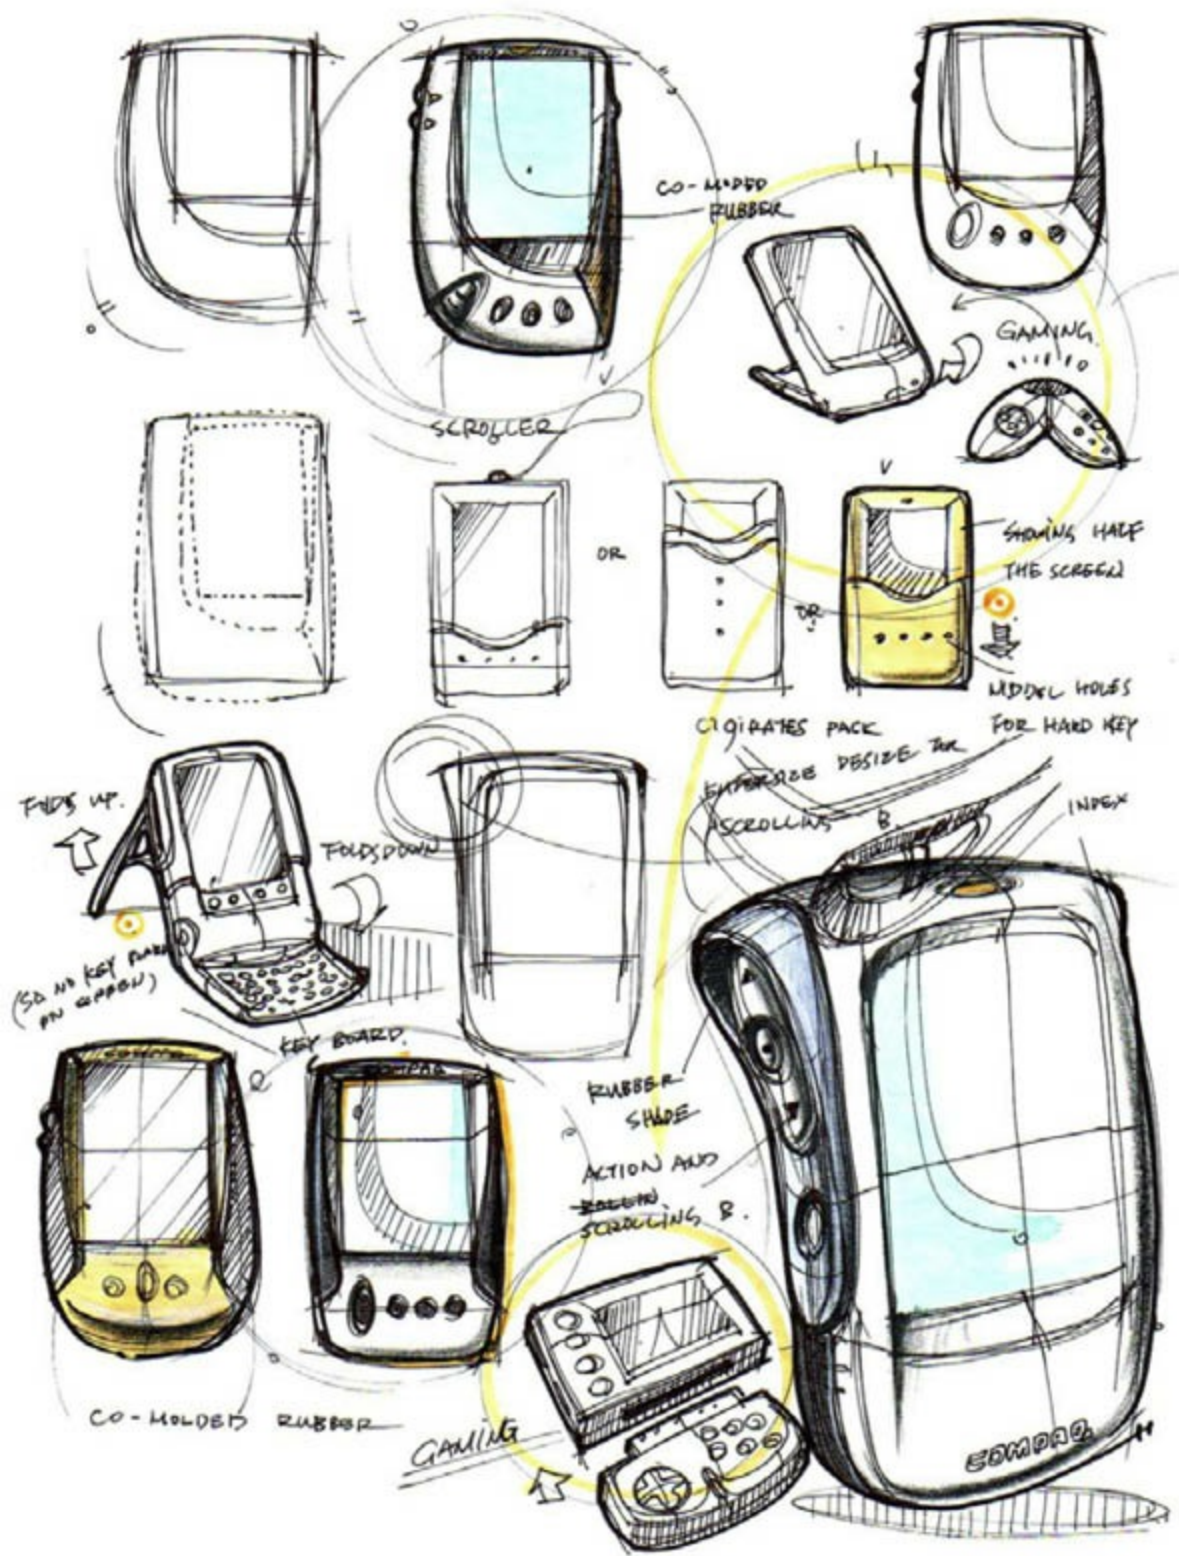 CO-MODED
RUBBER
GAMING.
SCROLLER
OR
OR
SHOWING HALF
THE SCREEN
MIDDEL HOLES
FOR HARD KEY
CIGIRATES PACK
DESIZE
SCROLLING B.
INDEX
FOLDS UP.
FOLDSDOWN
(SO NO KEY BOARD
ON SCREEN)
KEY BOARD.
COMPAQ
RUBBER
SHADE
ACTION AND
SCROLLING B.
CO-MOLDED RUBBER
GAMING
COMPAQ